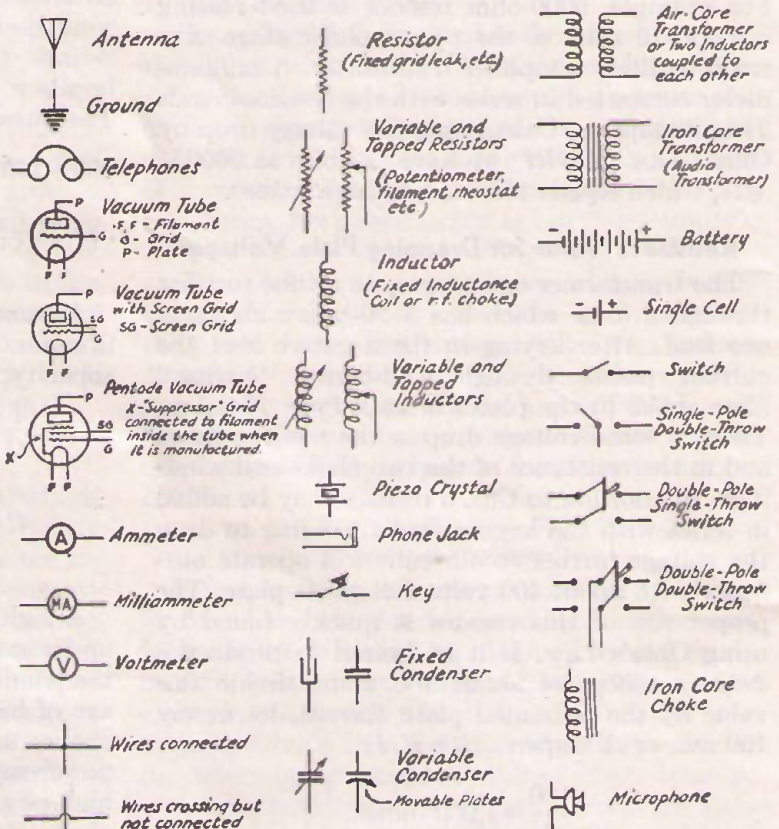 Antenna
Ground
Telephones
Vacuum Tube
F, F - Filament
G - Grid
P - Plate
P
G
F F
Vacuum Tube
with Screen Grid
SG - Screen Grid
P
SG
G
F F
Pentode Vacuum Tube
X-"Suppressor" Grid
connected to filament
inside the tube when
it is manufactured.
P
SG
G
X
F F
A
Ammeter
MA
Milliammeter
V
Voltmeter
Wires connected
Wires crossing but
not connected
Resistor
(Fixed grid leak, etc)
Variable and
Tapped Resistors
(Potentiometer,
filament rheostat
etc.)
Inductor
(Fixed Inductance
Coil or r.f. choke)
Variable and
Tapped
Inductors
Piezo Crystal
Phone Jack
Key
Fixed
Condenser
Variable
Condenser
Movable Plates
Air-Core
Transformer
or Two Inductors
coupled to
each other
Iron Core
Transformer
(Audio
Transformer)
- +
Battery
- +
Single Cell
Switch
Single-Pole
Double-Throw
Switch
Double-Pole
Single-Throw
Switch
Double-Pole
Double-Throw
Switch
Iron Core
Choke
Microphone